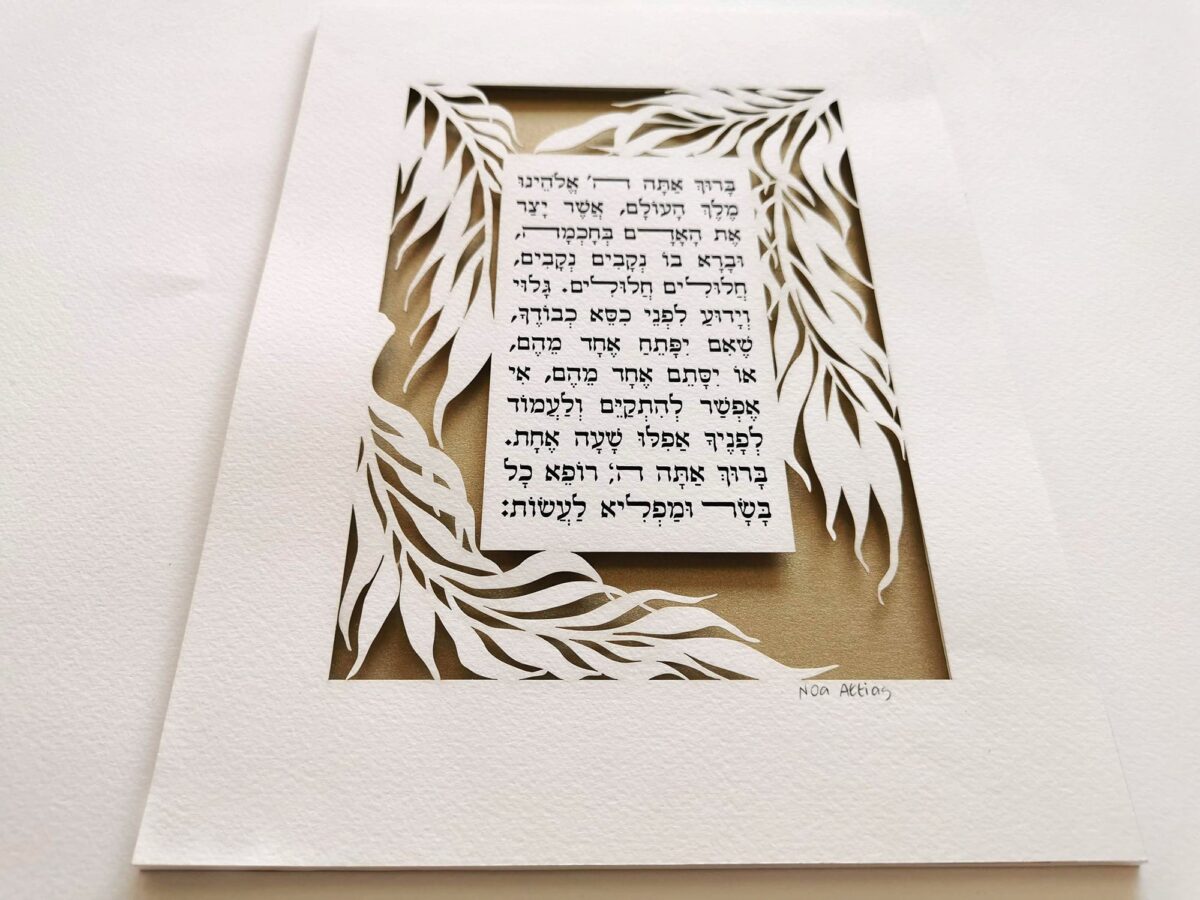 בָּרוּךְ אַתָּה ה' אֱלֹהֵינוּ
מֶלֶךְ הָעוֹלָם, אֲשֶׁר יָצַר
אֶת הָאָדָם בְּחָכְמָה,
וּבָרָא בוֹ נְקָבִים נְקָבִים,
חֲלוּלִים חֲלוּלִים. גָּלוּי
וְיָדוּעַ לִפְנֵי כִסֵּא כְבוֹדֶךָ,
שֶׁאִם יִפָּתֵחַ אֶחָד מֵהֶם,
אוֹ יִסָּתֵם אֶחָד מֵהֶם, אִי
אֶפְשַׁר לְהִתְקַיֵּם וְלַעֲמוֹד
לְפָנֶיךָ אַפִלּוּ שָׁעָה אֶחָת.
בָּרוּךְ אַתָּה ה', רוֹפֵא כָל
בָּשָׂר וּמַפְלִיא לַעֲשׂוֹת:
Noa Attias